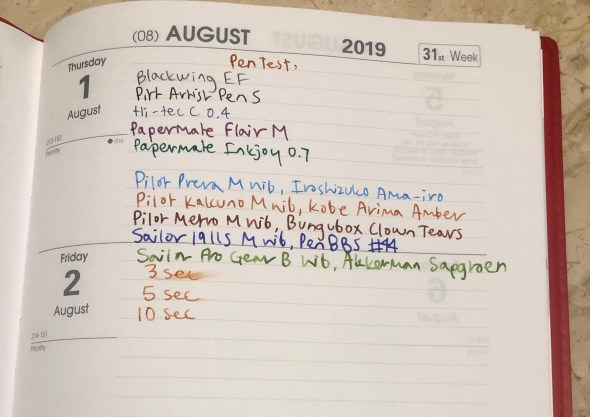 (08) AUGUST 2019 31st Week
Thursday
1
August
213-152
Priority
Pen Test:
Blackwing EF
Pitt Artist Pen S
Hi-tec C 0.4
Papermate Flair M
Papermate Inkjoy 0.7
Pilot Prera M nib, Iroshizuko Ama-iro
Pilot Kakuno M nib, Kobe Arima Amber
Pilot Metro M nib, Bungubox Clown Tears
Sailor 1911S M nib, PenBBS #44
Sailor Pro Gear B nib, Akkerman Sapgroen
Friday
2
August
214-151
Priority
3 sec
5 sec
10 sec